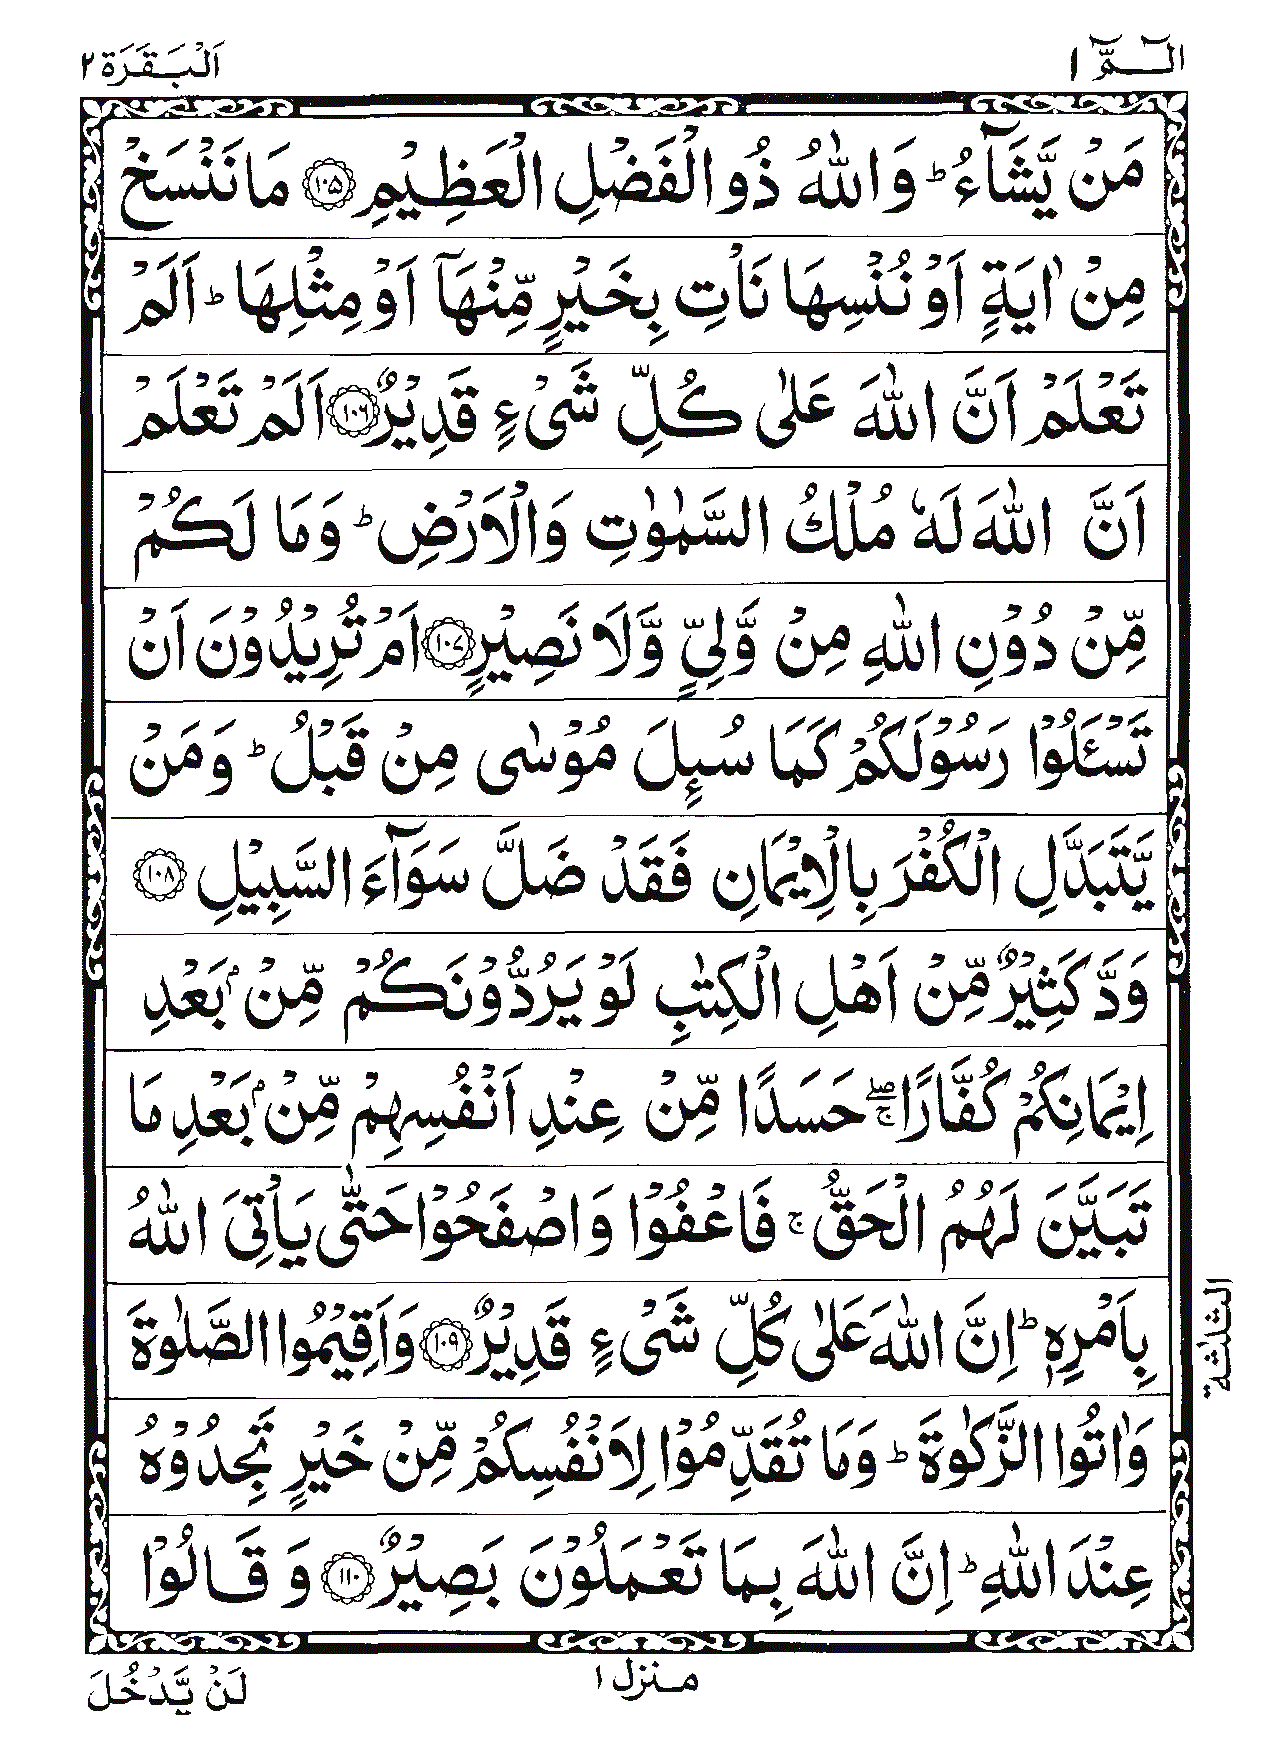 الٓمّٓ ١
اَلْبَقَرَة ٢
مَنْ يَّشَآءُ ؕ وَاللّٰهُ ذُو الْفَضْلِ الْعَظِيْمِ ۝۱۰۵ مَا نَنْسَخْ
مِنْ اٰيَةٍ اَوْ نُنْسِهَا نَاْتِ بِخَيْرٍ مِّنْهَآ اَوْ مِثْلِهَا ؕ اَلَمْ
تَعْلَمْ اَنَّ اللّٰهَ عَلٰى كُلِّ شَىْءٍ قَدِيْرٌ ۝۱۰۶ اَلَمْ تَعْلَمْ
اَنَّ اللّٰهَ لَهٗ مُلْكُ السَّمٰوٰتِ وَالْاَرْضِ ؕ وَمَا لَكُمْ
مِّنْ دُوْنِ اللّٰهِ مِنْ وَّلِيٍّ وَّلَا نَصِيْرٍ ۝۱۰۷ اَمْ تُرِيْدُوْنَ اَنْ
تَسْئَلُوْا رَسُوْلَكُمْ كَمَا سُئِلَ مُوْسٰى مِنْ قَبْلُ ؕ وَمَنْ
يَّتَبَدَّلِ الْكُفْرَ بِالْاِيْمَانِ فَقَدْ ضَلَّ سَوَآءَ السَّبِيْلِ ۝۱۰۸
وَدَّ كَثِيْرٌ مِّنْ اَهْلِ الْكِتٰبِ لَوْ يَرُدُّوْنَكُمْ مِّنْۢ بَعْدِ
اِيْمَانِكُمْ كُفَّارًا ۖۚ حَسَدًا مِّنْ عِنْدِ اَنْفُسِهِمْ مِّنْۢ بَعْدِ مَا
تَبَيَّنَ لَهُمُ الْحَقُّ ۚ فَاعْفُوْا وَاصْفَحُوْا حَتّٰى يَاْتِىَ اللّٰهُ
بِاَمْرِهٖ ؕ اِنَّ اللّٰهَ عَلٰى كُلِّ شَىْءٍ قَدِيْرٌ ۝۱۰۹ وَاَقِيْمُوا الصَّلٰوةَ
وَاٰتُوا الزَّكٰوةَ ؕ وَمَا تُقَدِّمُوْا لِاَنْفُسِكُمْ مِّنْ خَيْرٍ تَجِدُوْهُ
عِنْدَ اللّٰهِ ؕ اِنَّ اللّٰهَ بِمَا تَعْمَلُوْنَ بَصِيْرٌ ۝۱۱۰ وَقَالُوْا
الثلٰثة
منزل ١
لَنْ يَّدْخُلَ